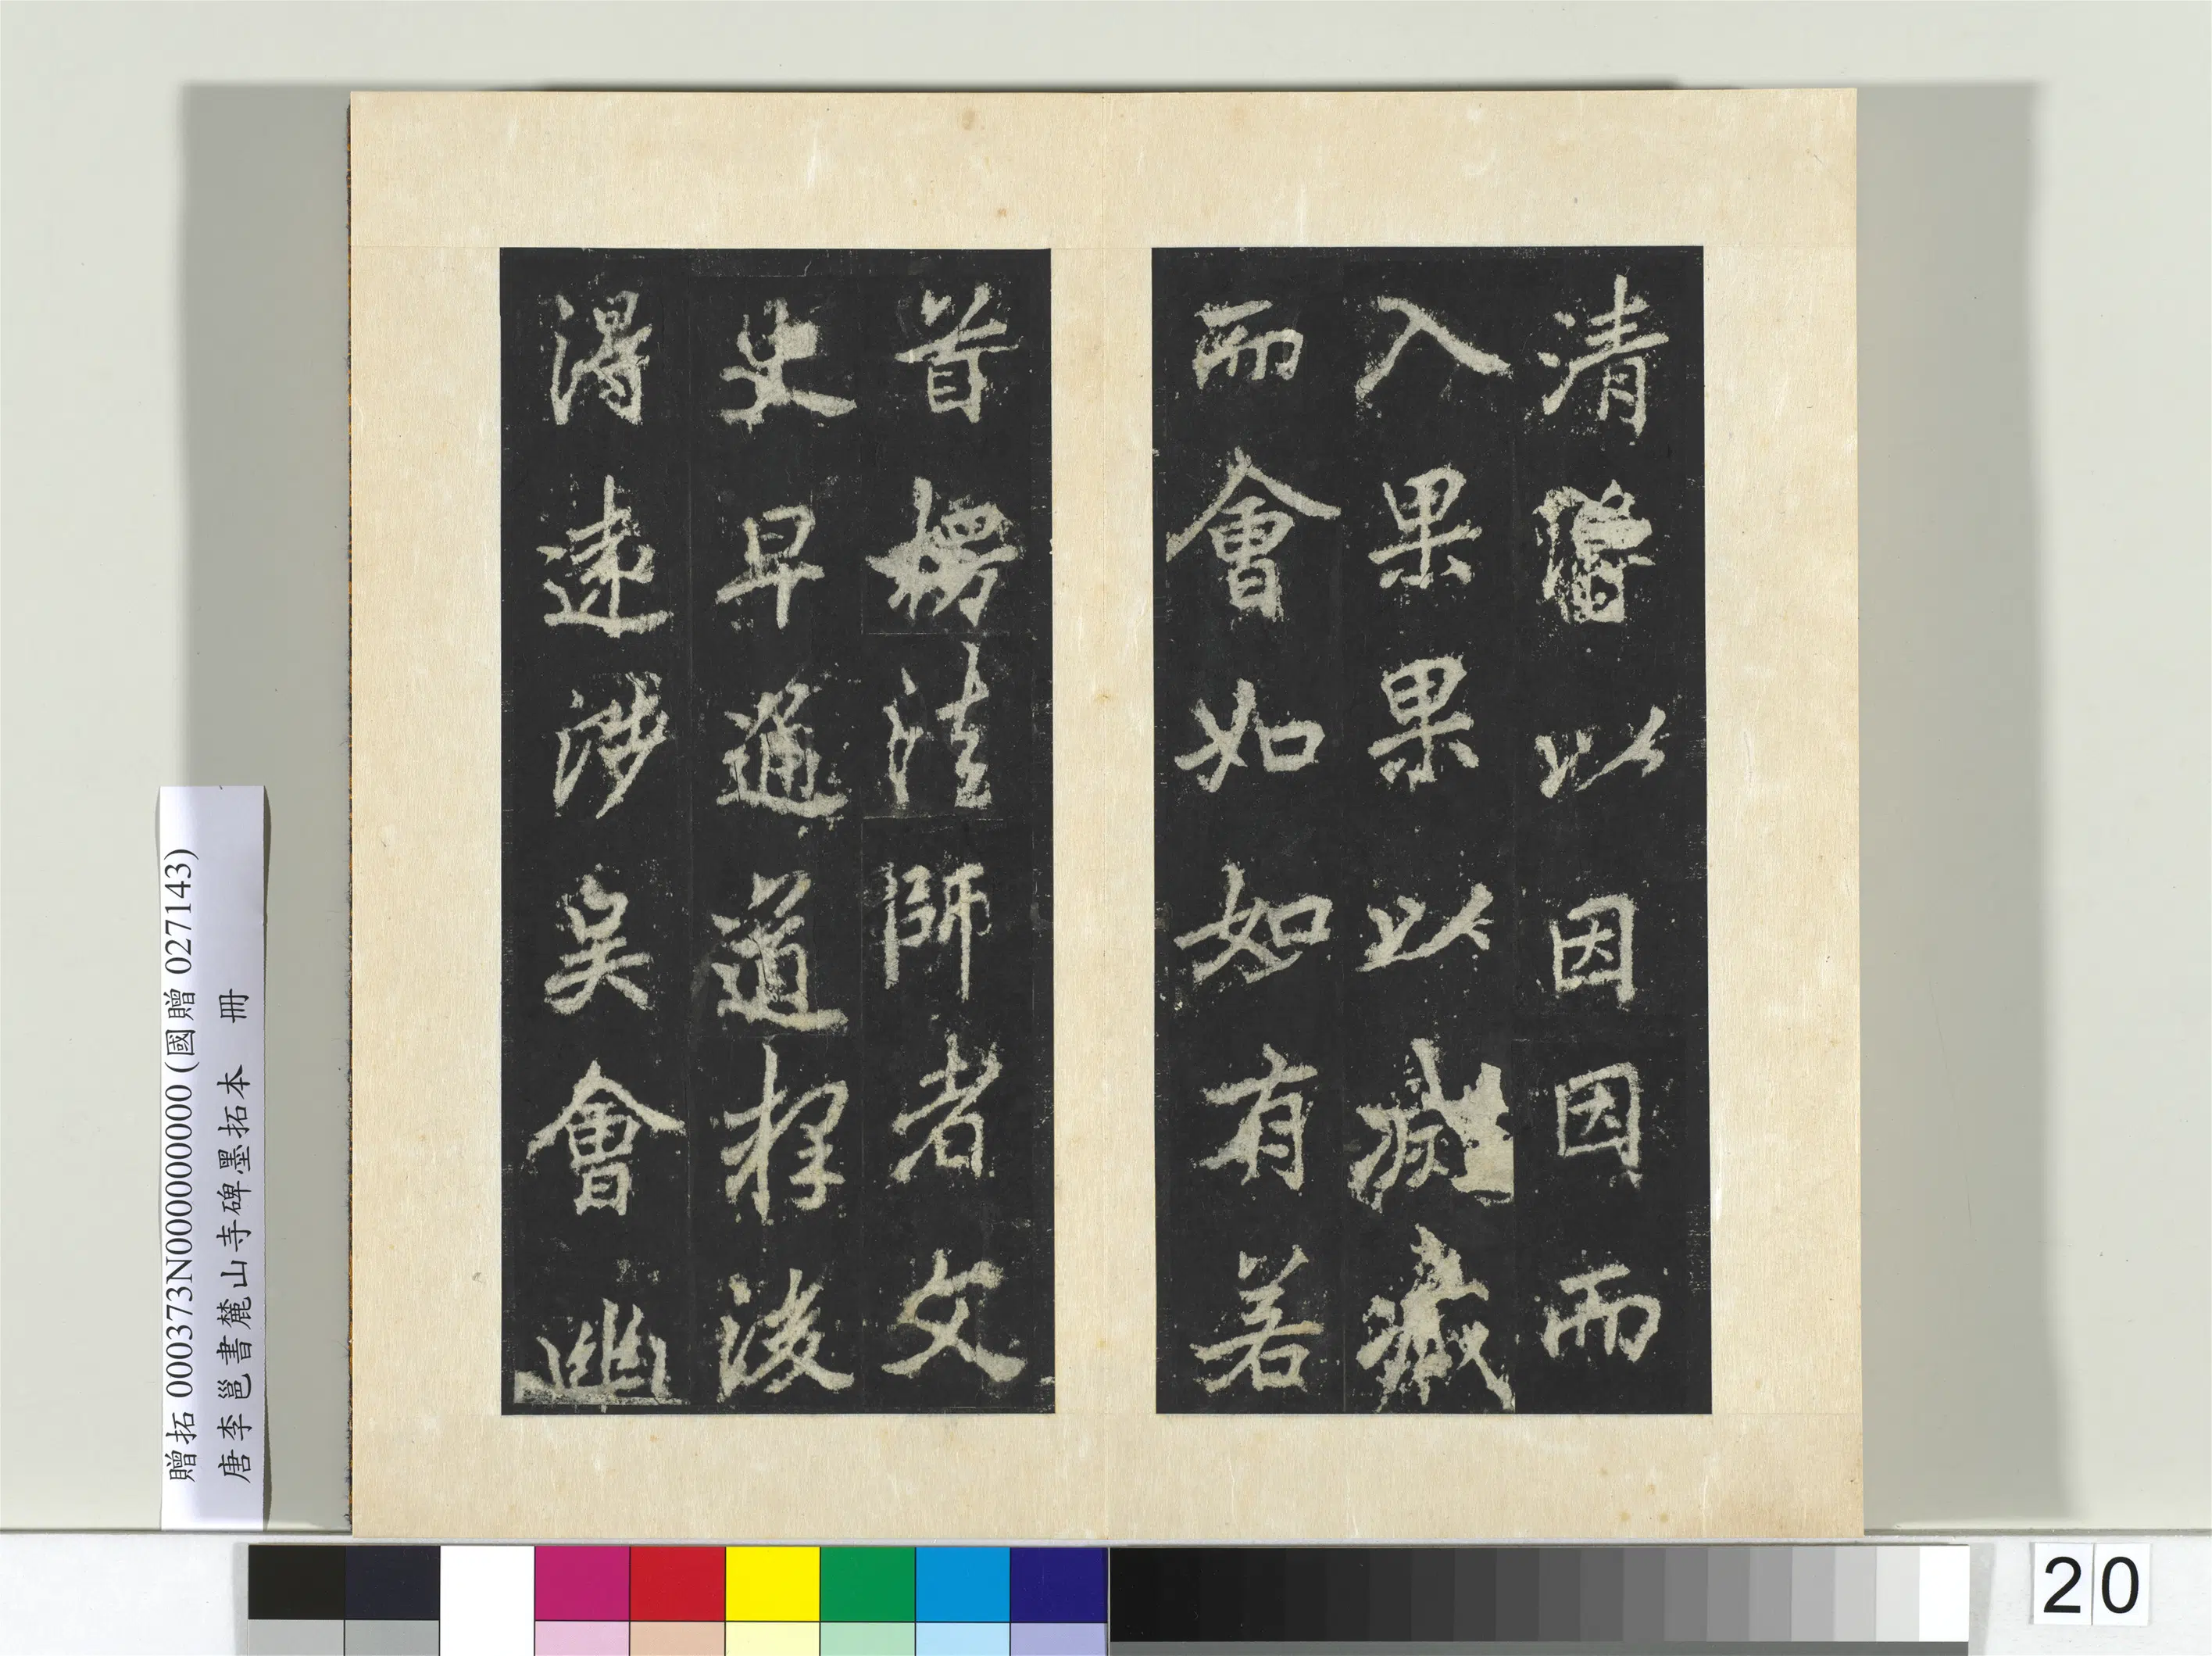 清以因因而
入果果以滅滅
而會如如有若
首楞法師者文
史早通道釋後
得遠涉吳會幽
贈拓 000373N000000000 (國贈 027143)
唐李邕書麓山寺碑墨拓本 冊
20